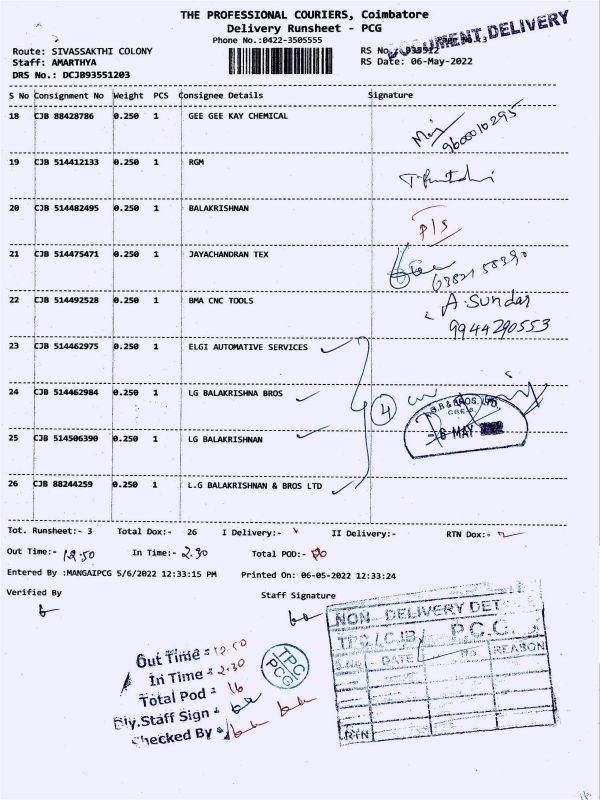 THE PROFESSIONAL COURIERS, Coimbatore
Delivery Runsheet - PCG
Phone No.:0422-3505555
DOCUMENT DELIVERY
Route: SIVASSAKTHI COLONY
Staff: AMARTHYA
DRS No.: DCJB93551203
RS No.
RS Date: 06-May-2022
S No Consignment No Weight PCS Consignee Details Signature
18 CJB 88428786 0.250 1 GEE GEE KAY CHEMICAL
9600010295
19 CJB 514412133 0.250 1 RGM
20 CJB 514482495 0.250 1 BALAKRISHNAN P/S
21 CJB 514475471 0.250 1 JAYACHANDRAN TEX
6382158390
22 CJB 514492528 0.250 1 BMA CNC TOOLS A. Sundar
9944290553
23 CJB 514462975 0.250 1 ELGI AUTOMATIVE SERVICES
24 CJB 514462984 0.250 1 LG BALAKRISHNA BROS 4
25 CJB 514506390 0.250 1 LG BALAKRISHNAN
MAY
26 CJB 88244259 0.250 1 L.G BALAKRISHNAN & BROS LTD
Tot. Runsheet:- 3 Total Dox:- 26 I Delivery:- II Delivery:- RTN Dox:-
Out Time:- 12.50 In Time:- 2.30 Total POD:-
Entered By :MANGAIPCG 5/6/2022 12:33:15 PM Printed On: 06-05-2022 12:33:24
Verified By Staff Signature
Out Time = 12.50
In Time = 2.30
Total Pod = 16
Dly.Staff Sign =
Checked By =
TPC
PCG
NON - DELIVERY DET
TPS / CJB / P.C.G.
S.No DATE NO. REASON
RTN